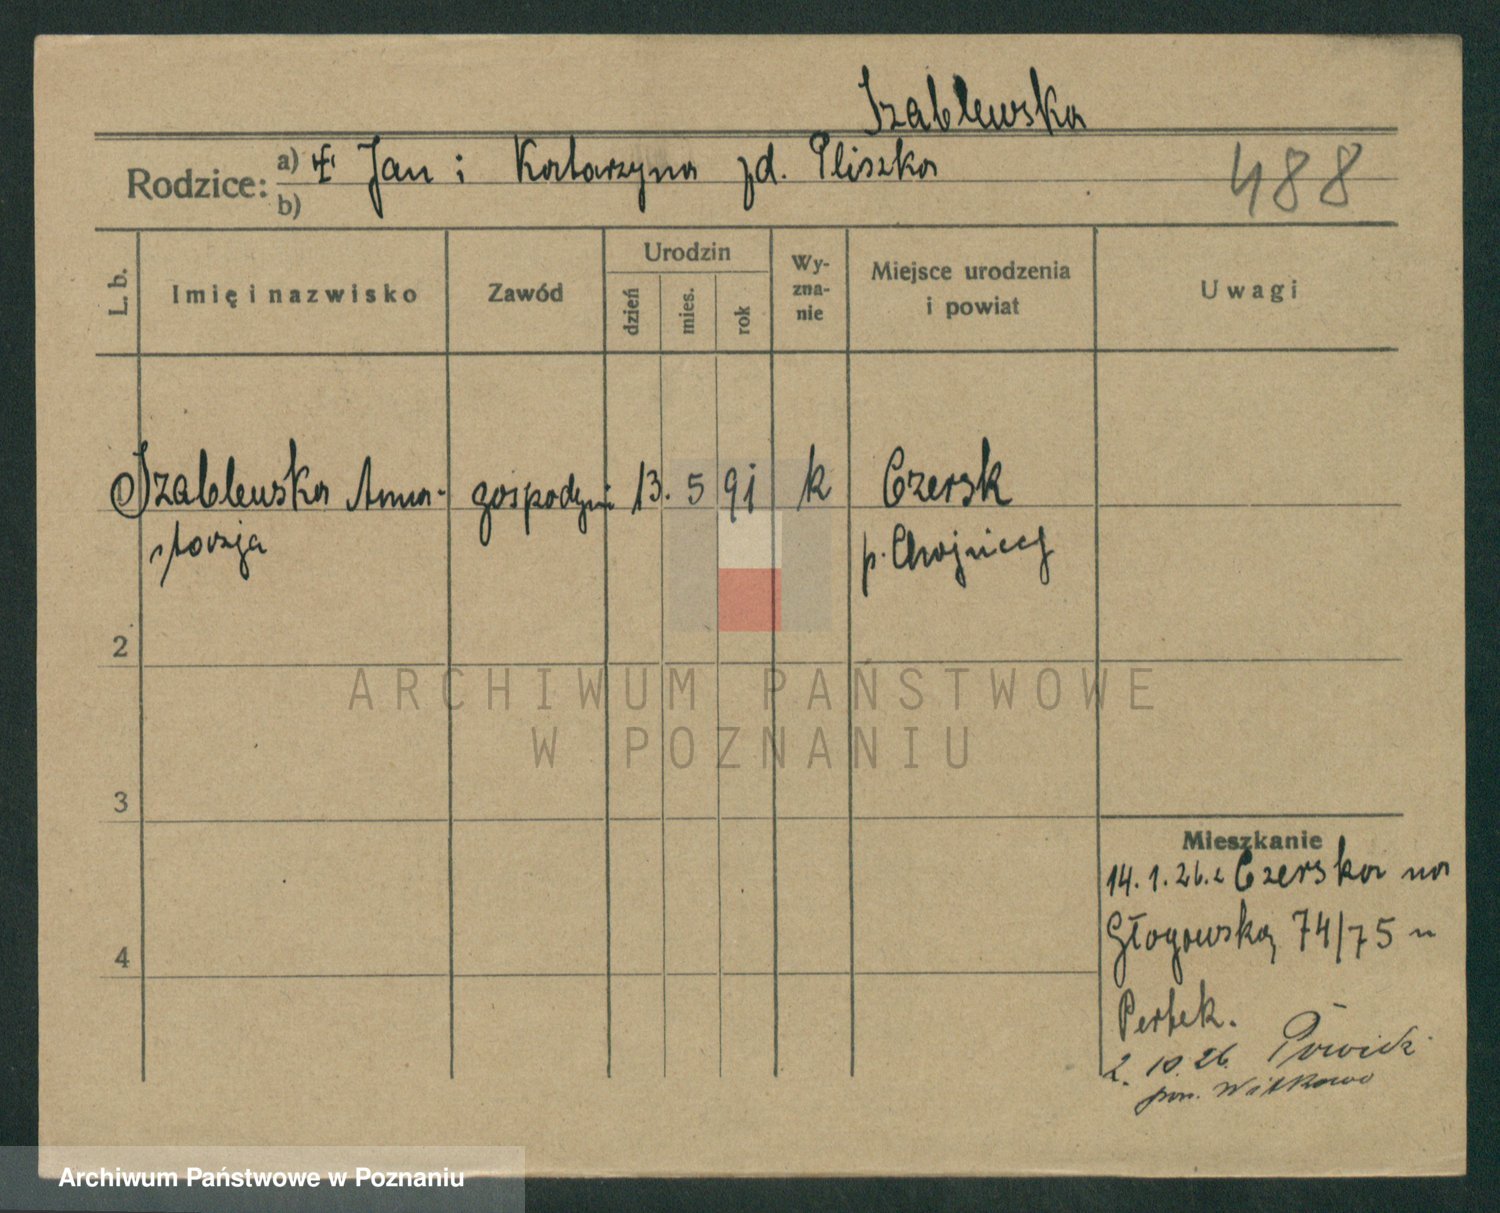 Szablewska
Rodzice: a) Jan i Katarzyna zd. Pliszka
b)
488
L. b.
Imię i nazwisko
Zawód
Urodzin
dzień
mies.
rok
Wy-
zna-
nie
Miejsce urodzenia
i powiat
Uwagi
Szablewska Anna- gospodyni 13. 5 91 k Czersk
stazja
p. Chojnicy
2
3
4
Mieszkanie
14. 1. 26. z Czerska na
Głogowską 74/75 u
Pertek.
2. 10. 26. Powidz
pow. Witkowo
ARCHIWUM PAŃSTWOWE
W POZNANIU
Archiwum Państwowe w Poznaniu